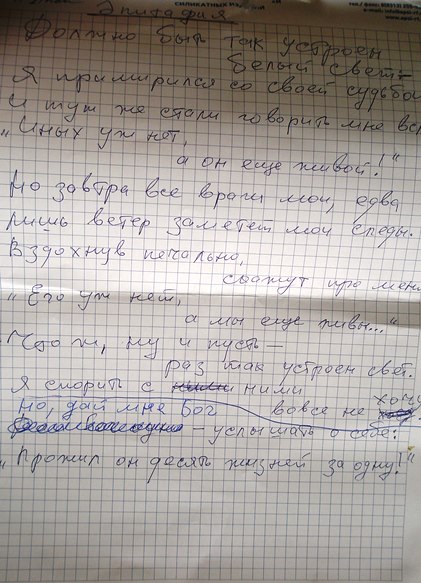 СИЛИКАТНЫХ
Эпитафия
Должно быть так устроен
белый свет –
Я примирился со своей судьбой
И тут же стали говорить мне вс
„Иных уж нет,
а он еще живой!“
Но завтра все враги мои, едва
лишь ветер заметет мои следы.
Вздохнув печально,
скажут про мен
„Его уж нет,
а мы еще живы...“
Что ж, ну и пусть –
раз так устроен свет.
Я спорить с ними
вовсе не хочу
Но, дай мне Бог
– услышать о себе:
„Прожил он десять жизней за одну!“